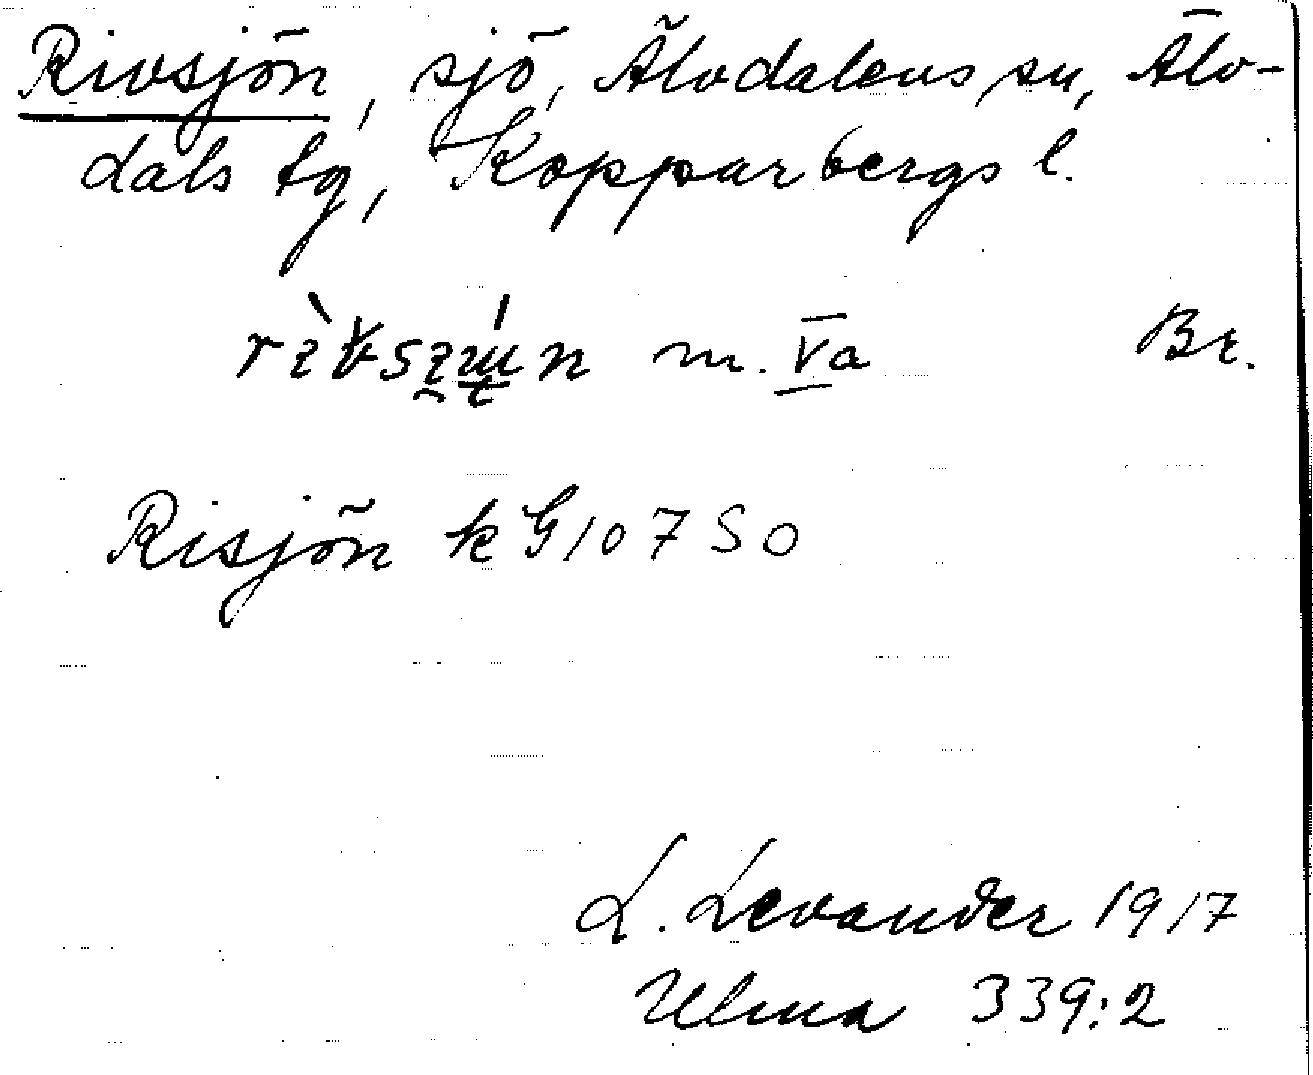 Rivsjön, sjö, Älvdalens sn, Älv-
dals tg, Kopparbergs l.
m. Va Br.
Risjön k G 107 SO
L. Levander 1917
Ulma 339:2